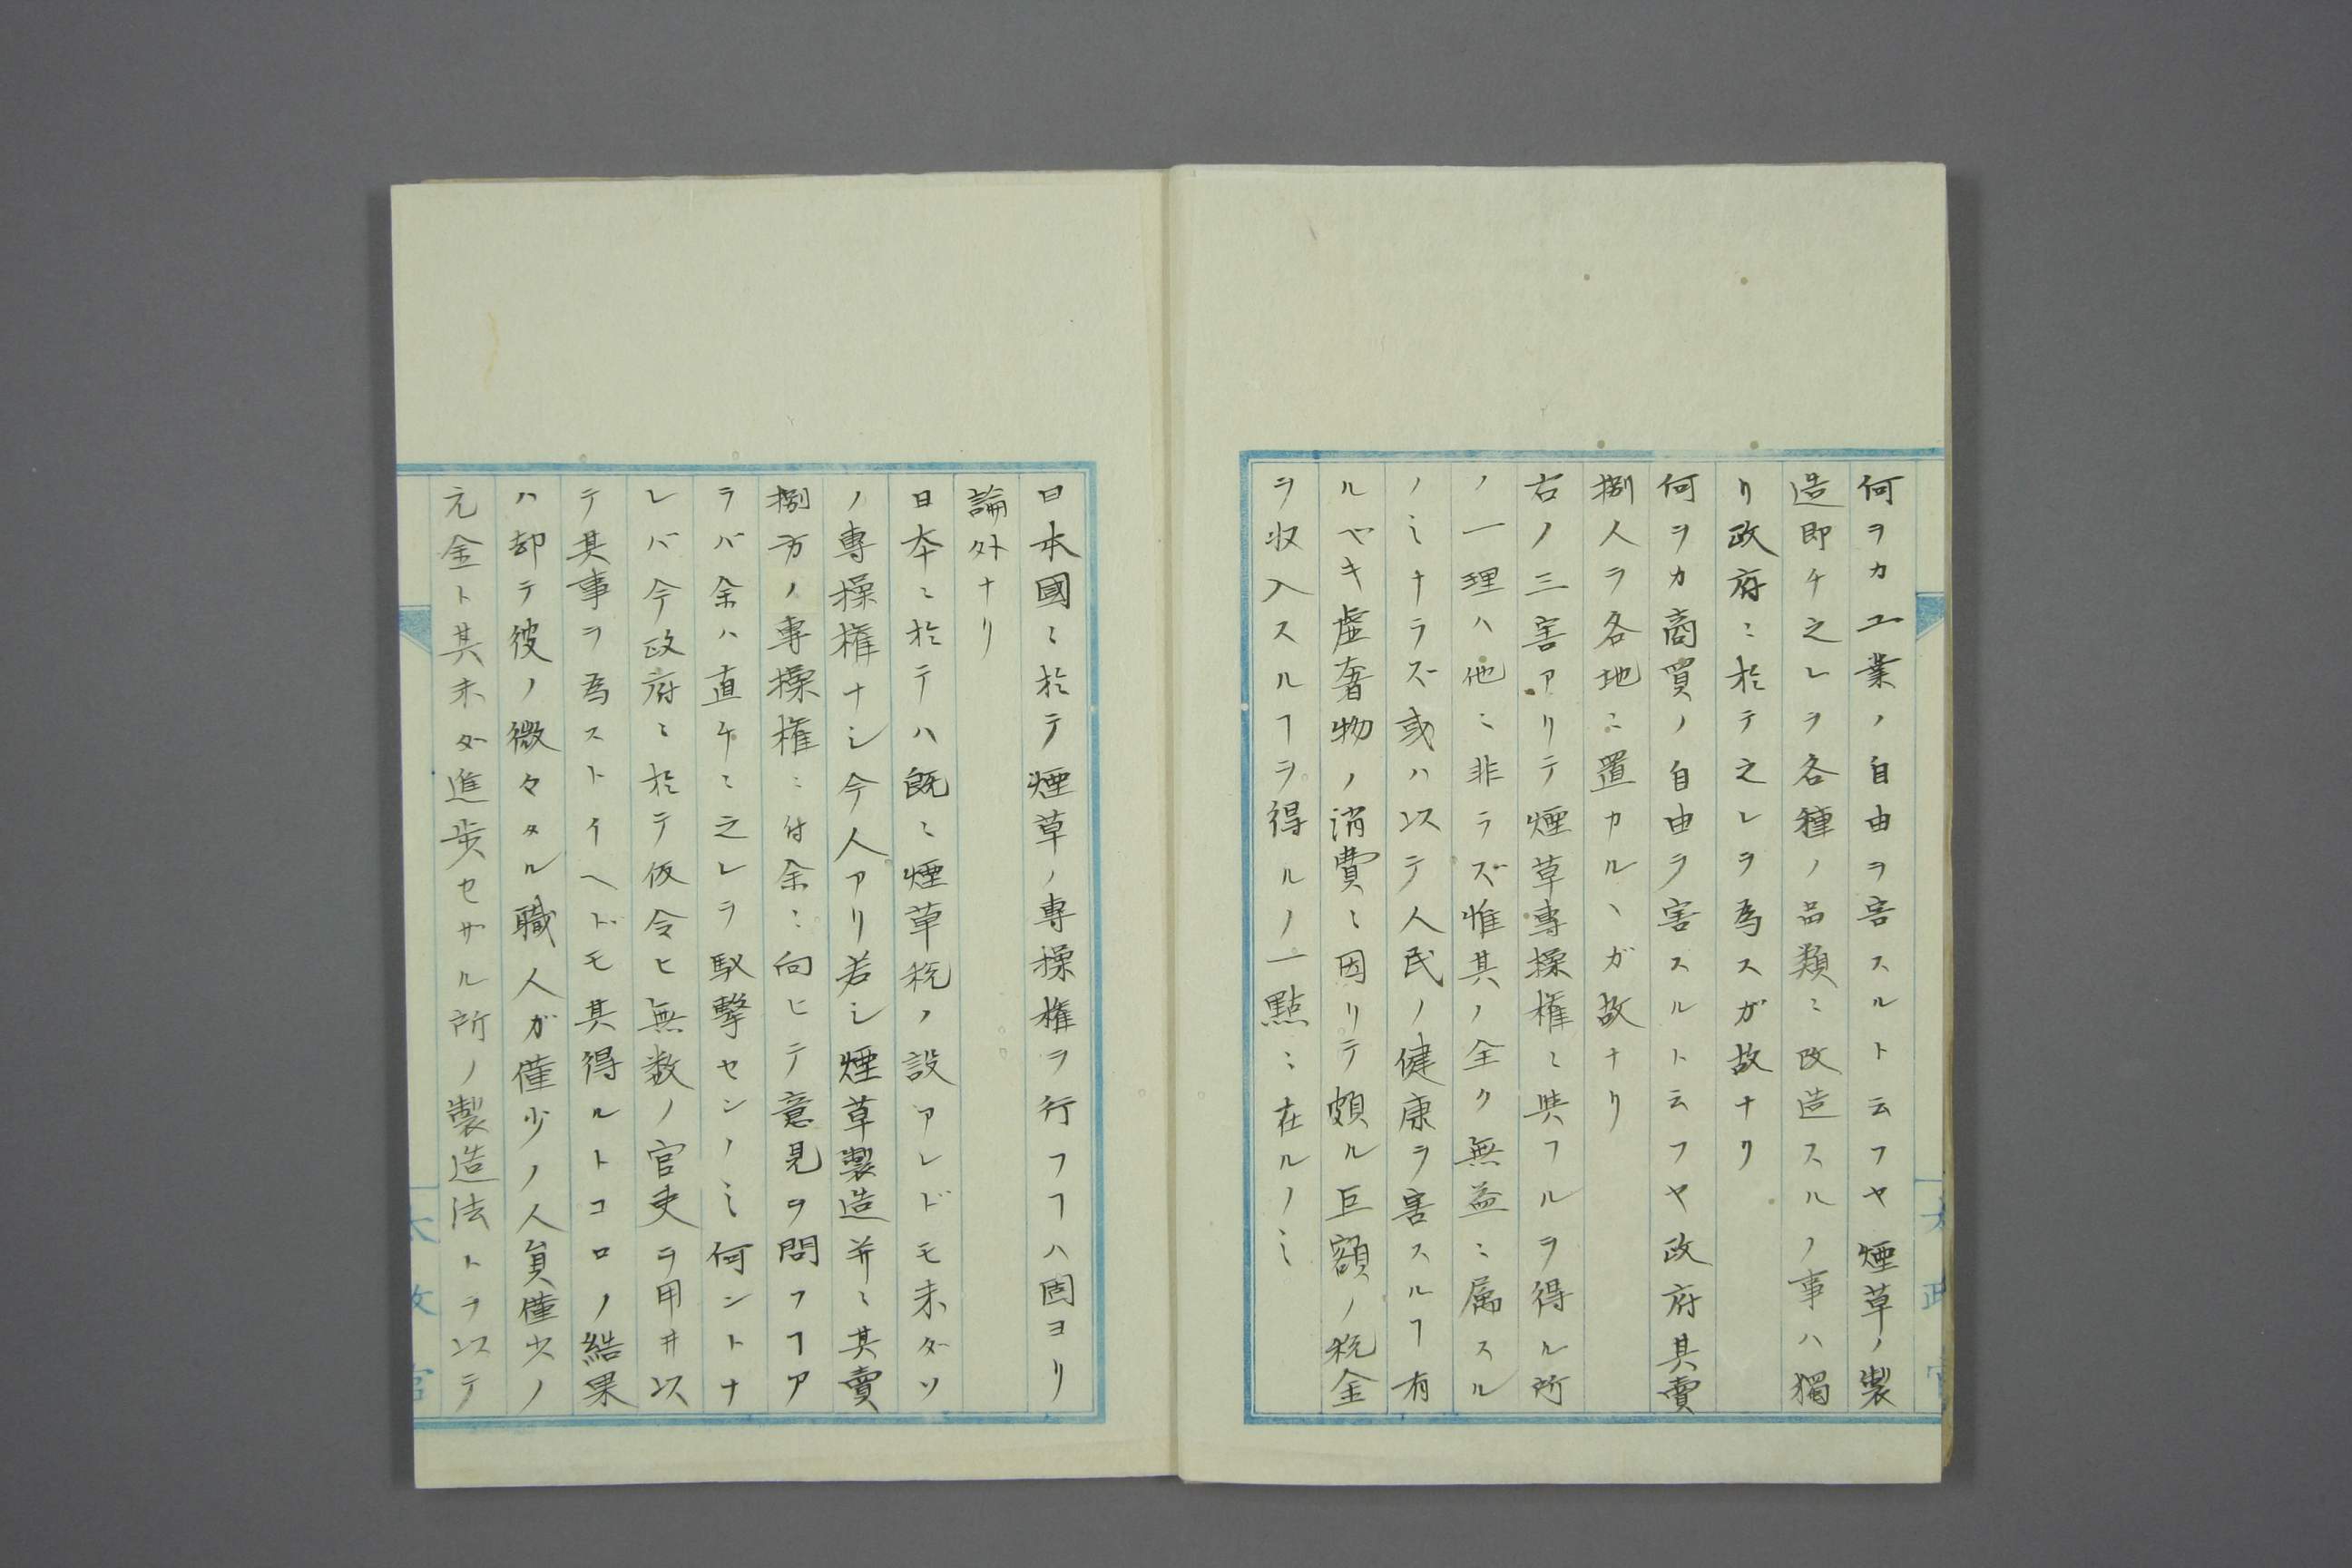 何ヲカ工業ノ自由ヲ害スルト云フヤ煙草ノ製
造即チ之レヲ各種ノ品類ニ改造スルノ事ハ獨
リ政府ニ於テ之レヲ為スガ故ナリ
何ヲカ商買ノ自由ヲ害スルト云フヤ政府其賣
捌人ヲ各地ニ置カルヽガ故ナリ
右ノ三害アリテ煙草專操權ニ與フルヲ得ル所
ノ一理ハ他ニ非ラズ惟其ノ全ク無益ニ属スル
ノミナラズ或ハ以テ人民ノ健康ヲ害スルヿ有
ルベキ虚奢物ノ消費ニ因リテ頗ル巨額ノ税金
ヲ収入スルヿヲ得ルノ一點ニ在ルノミ
日本國ニ於テ煙草ノ專操權ヲ行フヿハ固ヨリ
論外ナリ
日本ニ於テハ既ニ煙草税ノ設アレドモ未ダソ
ノ專操權ナシ今人アリ若シ煙草製造并ニ其賣
捌方ノ專操權ニ付余ニ向ヒテ意見ヲ問フヿア
ラバ余ハ直チニ之レヲ駁撃センノミ何ントナ
レバ今政府ニ於テ仮令ヒ無数ノ官吏ヲ用井以
テ其事ヲ為ストイヘドモ其得ルトコロノ結果
ハ却テ彼ノ微々タル職人ガ僅少ノ人員僅少ノ
元金ト其未ダ進歩セサル所ノ製造法トヲ以テ
太政官